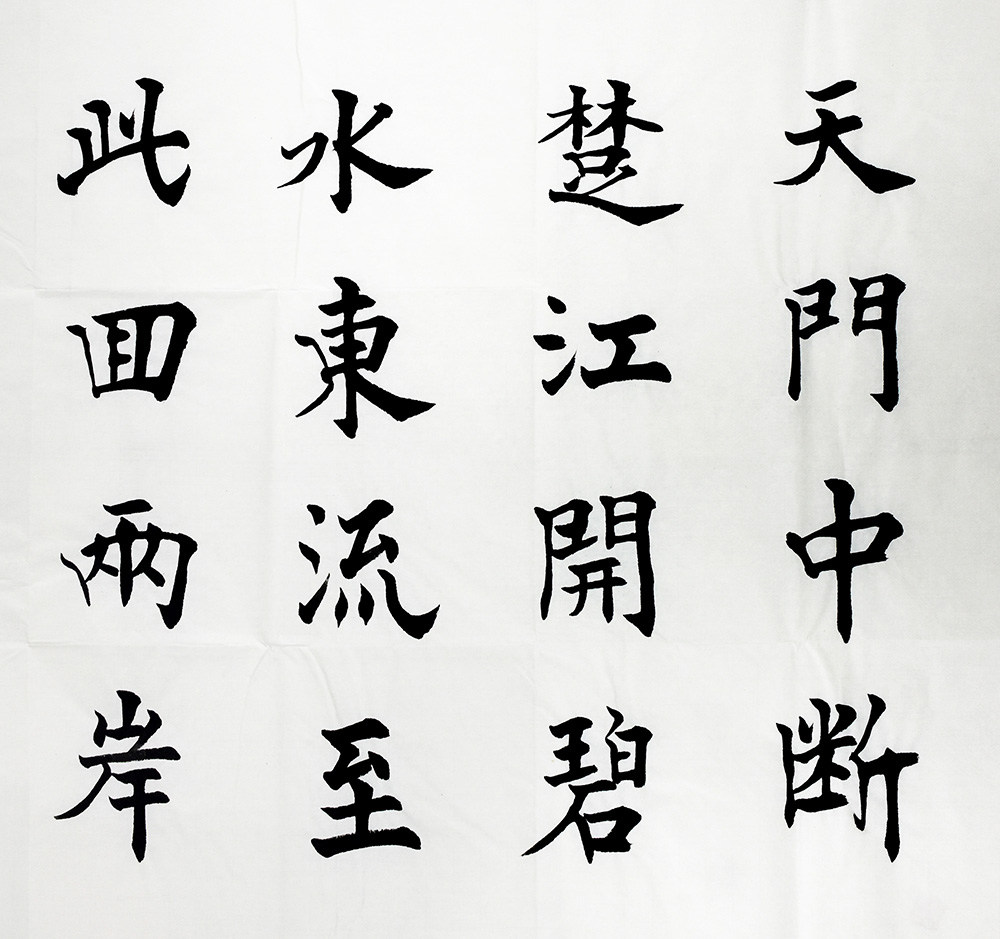 天門中斷
楚江開碧
水東流至
此回兩岸